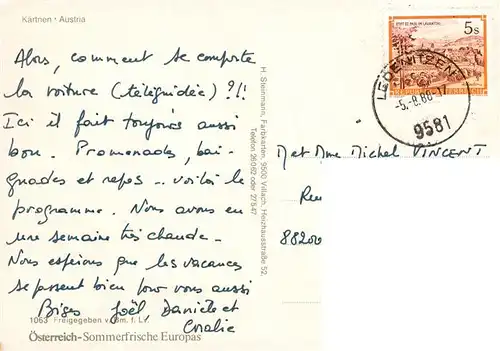 Kärtnen · Austria
Alors, comment se comporte
la voiture (téléguidée) ?!!
Ici il fait toujours aussi
bon. Promenades, bai-
gnades et repos .. voilà le
programme. Nous avons eu
une semaine très chaude.
Nous espérons que les vacances
se passent bien pour vous aussi
Bises Joël, Danièle et
Coralie
1063 Freigegeben v.
Österreich-Sommerfrische Europas
H. Steinmann, Farbkarten, 9500 Villach, Heizhausstraße 52,
Telefon 26062 oder 27647
5s
LEDENITZEN
-5.-8.88-17
9581
M et Mme Michel VINCENT
Rue
88200